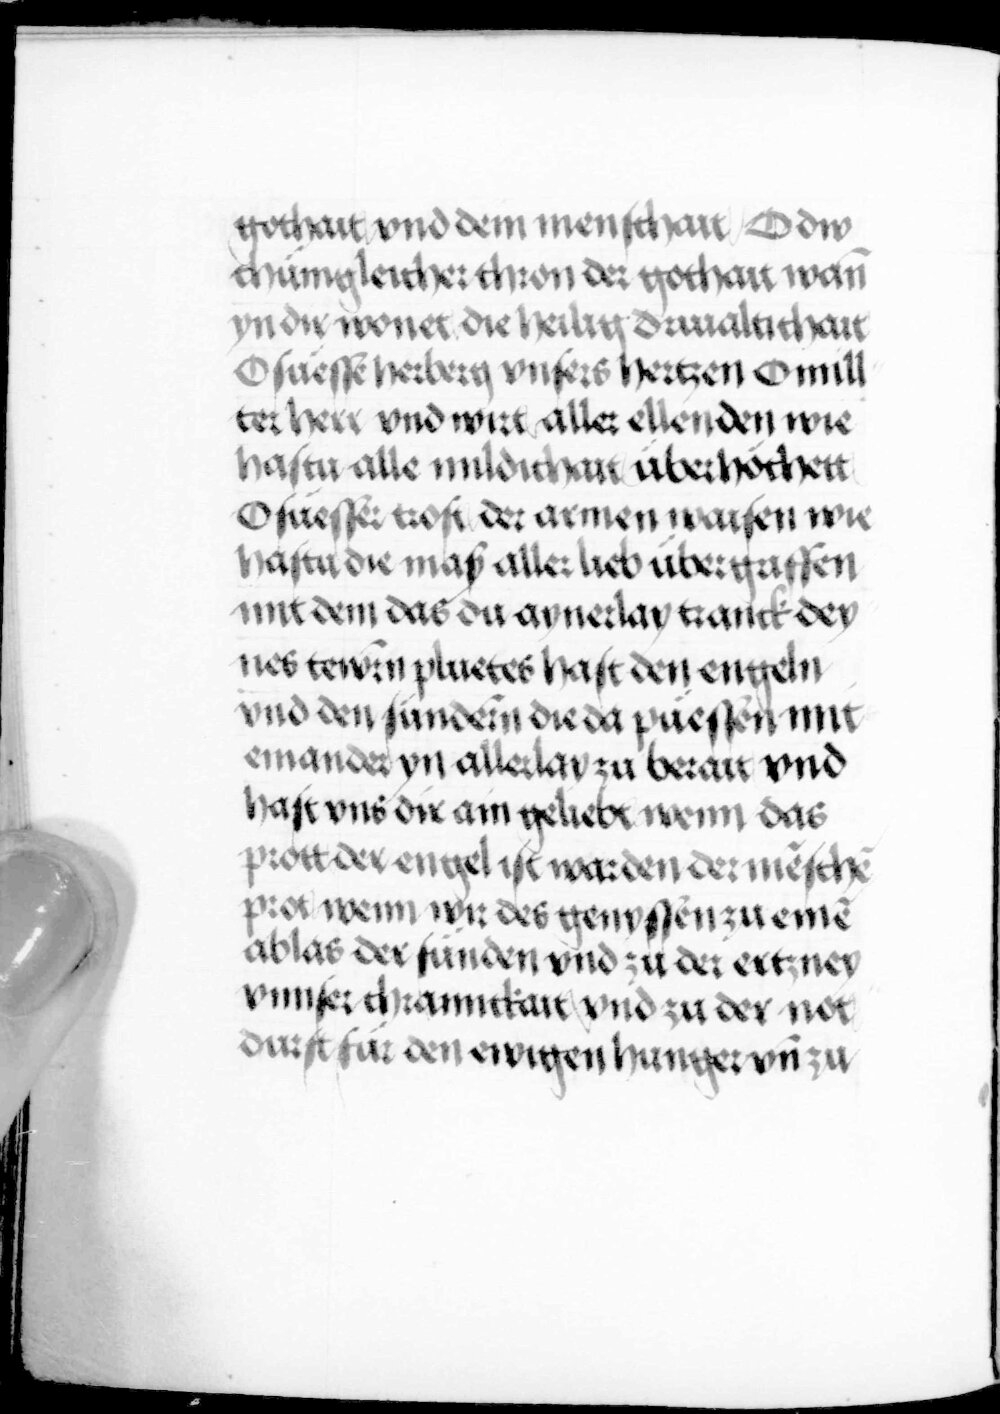 gothait vnd dem menschait O dw
chünigleicher thron der gothait wañ
yn dir wonet die heilig driualtichait
O süesse herberg vnsers hertzen O mill
ter herr vnd wirt aller ellenden wie
hastu alle mildichait überhöchett
O süesser trost der armen waisen wie
hastu die maß aller lieb übergriffen
mit dem das du aynerlay tranck dey
nes tewrn pluetes hast den engeln
vnd den sündern die da püessen mit
einander yn allerlay zu berait vnd
hast vns dir ain geliebt wenn das
prott der engel ist warden der mēschē
prot wenn wir des genyssen zu einē
ablas der sünden vnd zü der ertzney
vnnser chrannckait vnd zu der not
durft für den ewigen hunger vñ zu